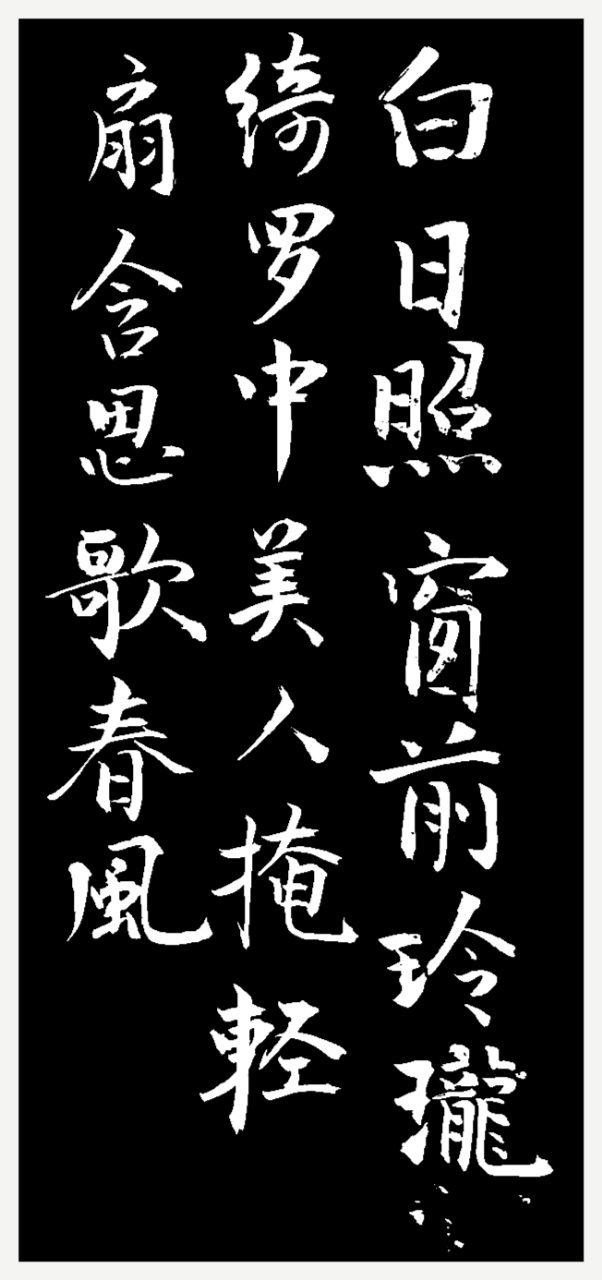 白日照窗前玲瓏
绮罗中美人掩軽
扇含思歌春風